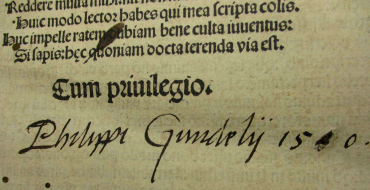 Huic modo lector habes qui mea scripta colis.
Huc impelle ratem bene culta iuuentus:
Si sapis: hęc quoniam docta terenda via est.
Cum priuilegio.
Philippi Gundelij